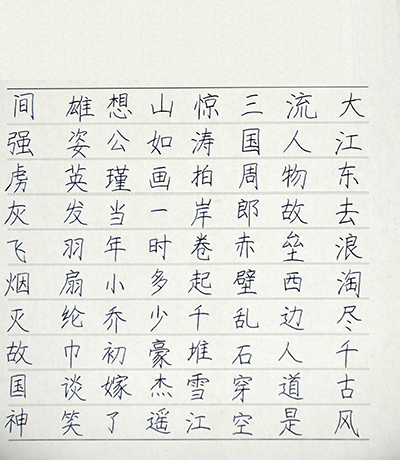 大江东去浪淘尽千古风
流人物故垒西边人道是
三国周郎赤壁乱石穿空
惊涛拍岸卷起千堆雪江
山如画一时多少豪杰遥
想公瑾当年小乔初嫁了
雄姿英发羽扇纶巾谈笑
间强虏灰飞烟灭故国神